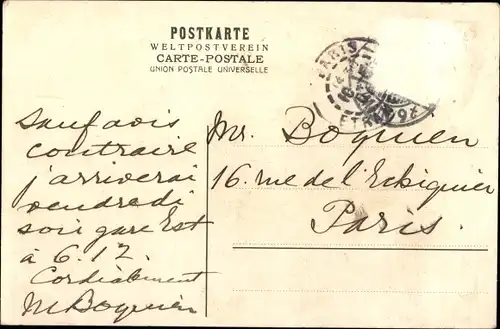 POSTKARTE
WELTPOSTVEREIN
CARTE-POSTALE
UNION POSTALE UNIVERSELLE
PARIS
ETR
Sauf avis
contraire
j'arriverai
vendredi
soir gare Est
à 6.17.
Cordialement
M Boquien
Mr. Boquien
16 rue de l'Echiquier
Paris.